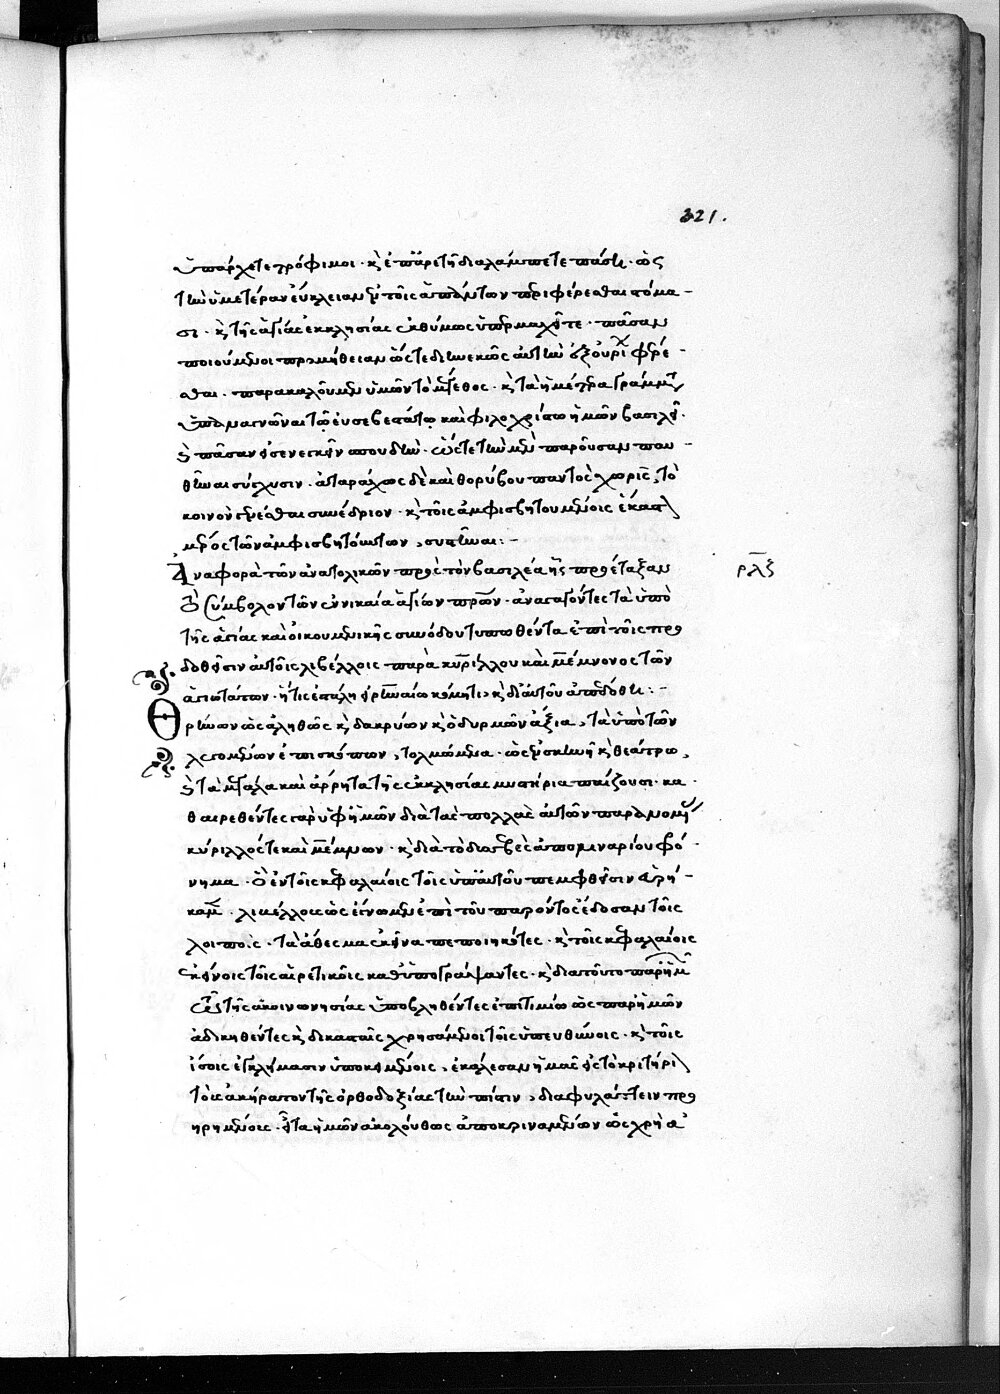 321.
ὑπάρχετε τρόφιμοι · κ̀ ἐπ᾽ ἀρετῆ διαλάμπετε πάση · ὡς
τὴν ὑμετέραν εὔκλειαν ἐν τοῖς ἁπάντων περιφέρεσθαι στόμα-
σι · κ̀ τῆς ἁγίας ἐκκλησίας ἐκθύμως ὑπερμαχεῖτε · πᾶσαν
ποιούμενοι προμήθειαν ὥστε διηνεκῶς αὐτὴν
σθαι · παρακαλοῦμεν ὑμῶν τὸ μέγεθος · κ̀ τὰ ἡμέτερα γράμματα
ὑπαναγνῶναι τῶ εὐσεβεστάτω καὶ φιλοχρίστω ἡμῶν βασιλεῖ ·
κ̀ πᾶσαν εἰσενεγκεῖν σπουδὴν · ὥστε τὴν μὲν παροῦσαν παυ-
θῆναι σύγχυσιν · ἀταράχως δὲ καὶ θορύβου παντὸς χωρὶς, τὸ
κοινὸν γενέσθαι συνέδριον · κ̀ τοῖς ἀμφισβητουμένοις ἑκατ
μερος τῶν ἀμφισβητούντων, συνεῖναι : -
Ἀναφορὰ τῶν ἀνατολικῶν πρὸς τὸν βασιλέα ἧς προέταξαν ρλξ
τὸ σύμβολον τῶν ἐν νικαία ἁγίων πρων · ἀνατρέποντες τὰ ὑπὸ
τῆς ἁγίας καὶ οἰκουμενικῆς συνόδου τυπωθέντα ἐπὶ τοῖς προ
δοθεῖσιν αὐτοῖς λιβέλλοις παρὰ κυρίλλου καὶ μέμνονος τῶν
ἁγιωτάτων · ἥτις ἐστάλη εἰρηναίω κόμητι, κ̀ δι᾽ αὐτοῦ ἀπεδόθη : -
Θρήνων ὡς ἀληθῶς κ̀ δακρύων κ̀ ὀδυρμῶν ἄξια, τὰ ὑπὸ τῶν
λεγομένων ἐπισκόπων, τολμώμενα · ὡς ἐν σκηνῆ κ̀ θεάτρω,
κ̀ τὰ μεγάλα καὶ ἄρρητα τῆς ἐκκλησίας μυστήρια παίζουσι · κα
θαιρεθέντες γὰρ ὑφ᾽ ἡμῶν διὰ τὰς πολλὰς αὐτῶν παρανομίας
κύριλλός τε καὶ μέμνων · κ̀ διὰ τὸ δυσσεβὲς ἀπολιναρίου φρό-
νημα · ὃ ἐν τοῖς κεφαλαίοις τοῖς ὑπ᾽ αὐτοῦ πεμφθεῖσιν εὑρή-
καμεν · λιβέλλους ὡς ἔγνωμεν ἐπὶ τοῦ παρόντος ἔδοσαν τοῖς
λοιποῖς · τὰ ἄθεσμα ἐκεῖνα πεποιηκότες · κ̀ τοῖς κεφαλαίοις
ἐκείνοις τοῖς αἱρετικοῖς καθυπογράψαντες · κ̀ διὰ τοῦτο παρ᾽ ἡμῶν
τοῖς τῆς ἀκοινωνησίας ὑποβληθέντες ἐπιτιμίω ὡς παρ᾽ ἡμῶν
ἀδικηθέντες κ̀ δικασταῖς χρησάμενοι τοῖς ὑπευθύνοις · κ̀ τοῖς
ἴσοις ἐγκλήμασιν ὑποκειμένοις, ἐκάλεσαν ἡμᾶς εἰς τὸ κριτήριον
τοὺς ἀκήρατον τῆς ὀρθοδοξίας τὴν πίστιν, διαφυλάττειν προ
ηρημένους · εἶτα ἡμῶν ἀκολούθως ἀποκριναμένων ὡς χρὴ α